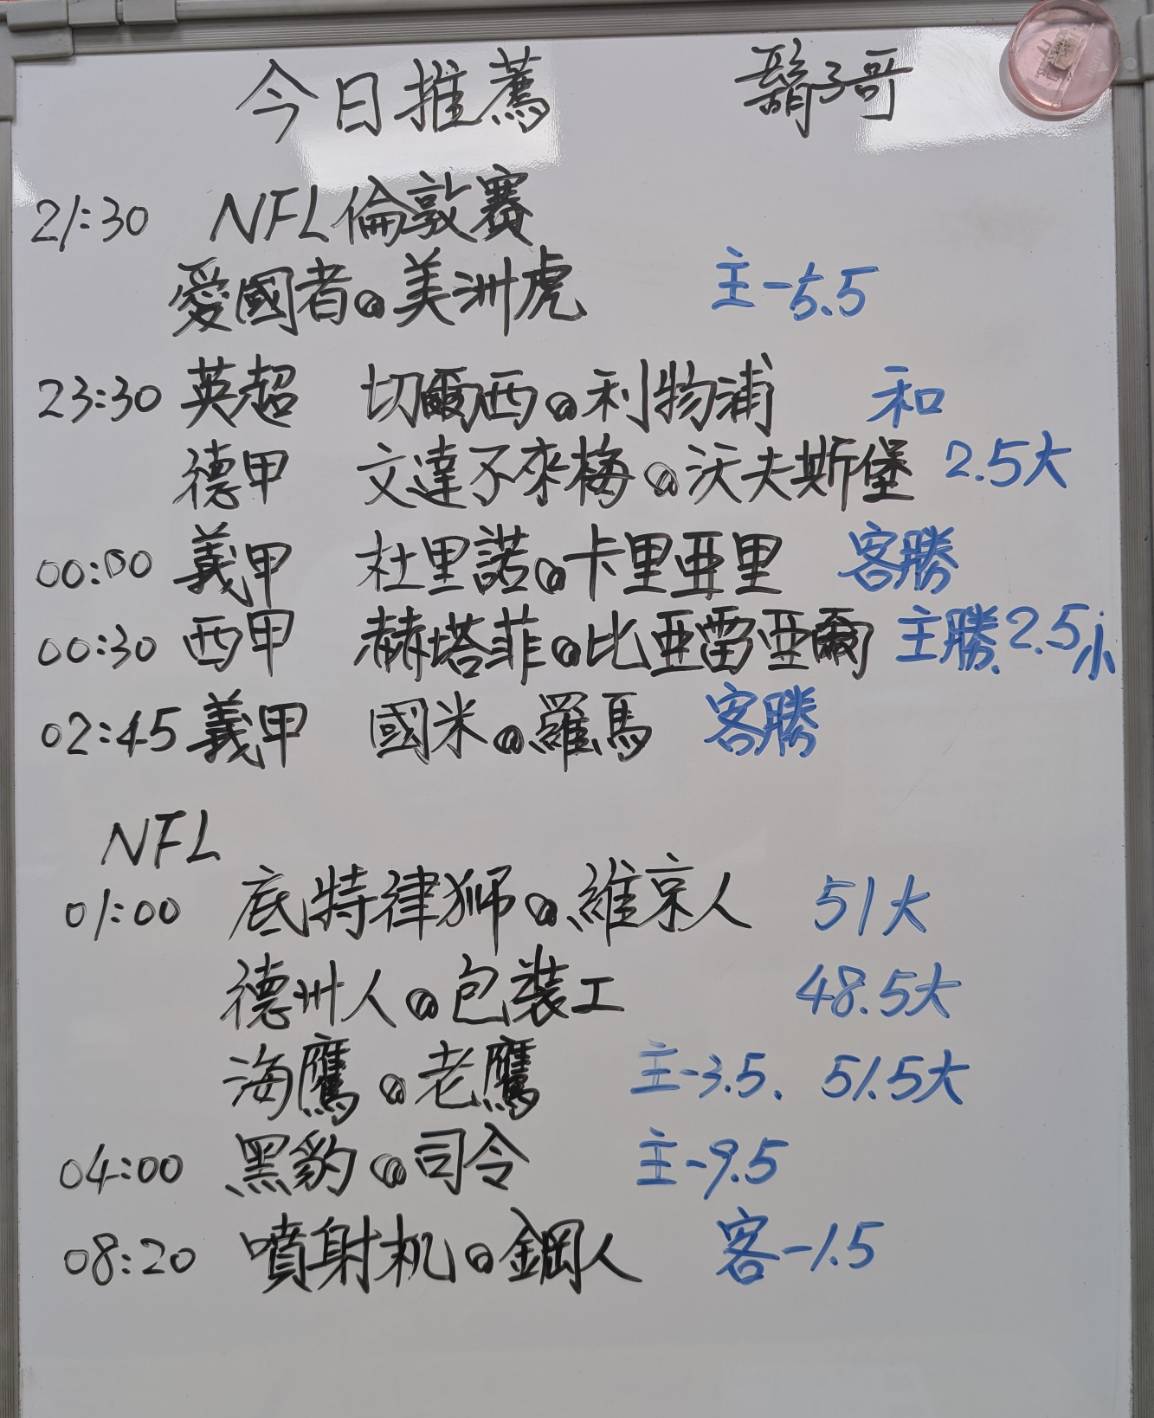 今日推薦 鬍子哥
21:30 NFL倫敦賽
愛國者@美洲虎 主-5.5
23:30 英超 切爾西@利物浦 和
德甲 文達不來梅@沃夫斯堡 2.5大
00:00 義甲 杜里諾@卡里亞里 客勝
00:30 西甲 赫塔菲@比亞雷亞爾 主勝、2.5小
02:45 義甲 國米@羅馬 客勝
NFL
01:00 底特律獅@維京人 51大
德州人@包裝工 48.5大
海鷹@老鷹 主-3.5、51.5大
04:00 黑豹@司令 主-9.5
08:20 噴射机@鋼人 客-1.5